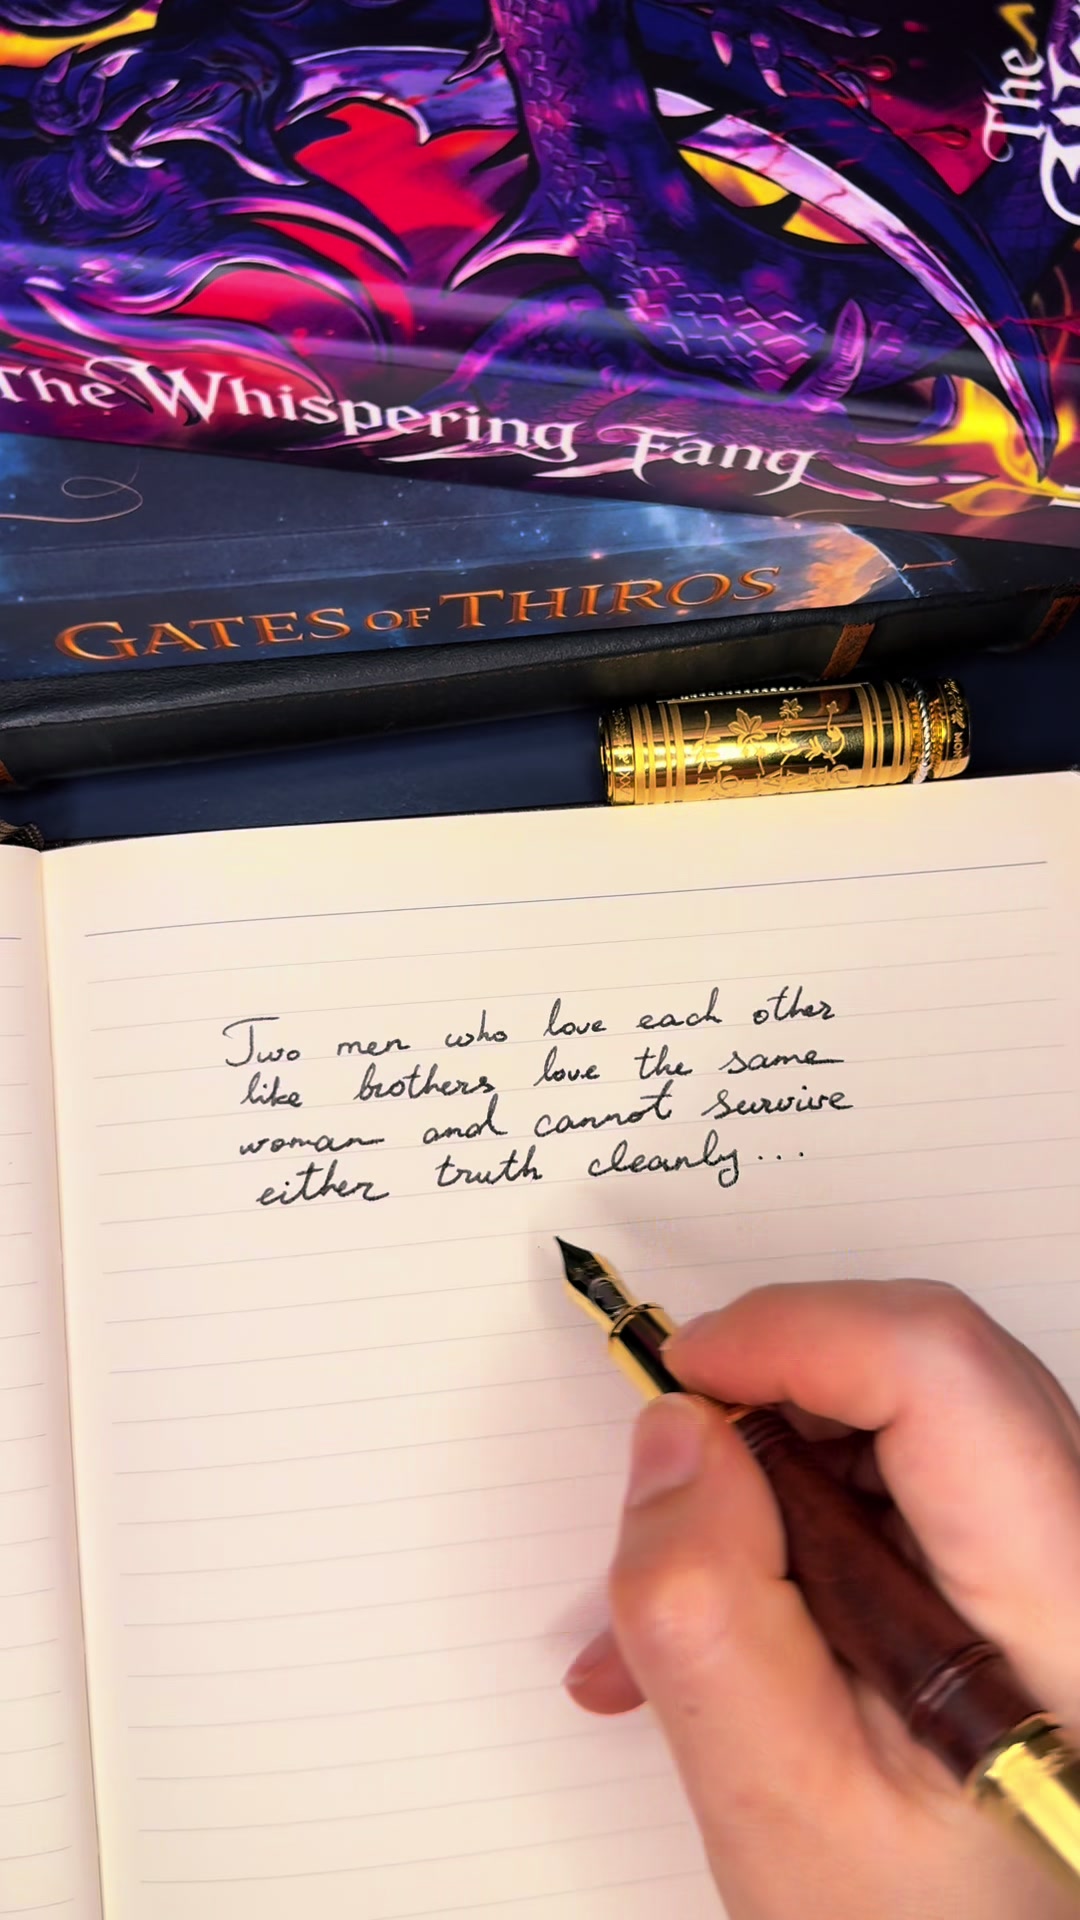 The
The Whispering Fang
GATES OF THIROS
Two men who love each other
like brothers love the same
woman and cannot survive
either truth cleanly...